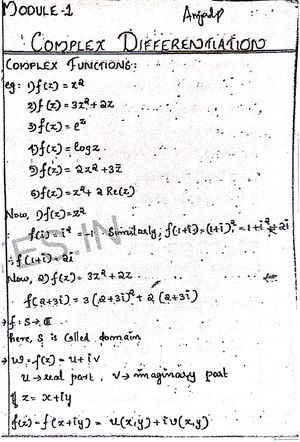 MODULE-1
COMPLEX DIFFERENTIATION
COMPLEX FUNCTIONS:
eg: 1) f(z) = z²
2) f(z) = 3z² + 2z
3) f(z) = e^z
4) f(z) = log z
5) f(z) = 2z² + 3z̄
6) f(z) = z² + 2 Re(z)
Now, 1) f(z) = z²
f(i) = i² = -1 Similarly, f(1+i) = (1+i)² = 1+i²+2i
∴ f(1+i) = 2i
Now, 2) f(z) = 3z² + 2z
f(2+3i) = 3(2+3i)² + 2(2+3i)
→ f: S → ℂ
here, S is called domain
→ W = f(z) = u + iv
u → real part, v → imaginary part
If z = x+iy
f(z) = f(x+iy) = u(x,y) + iv(x,y)